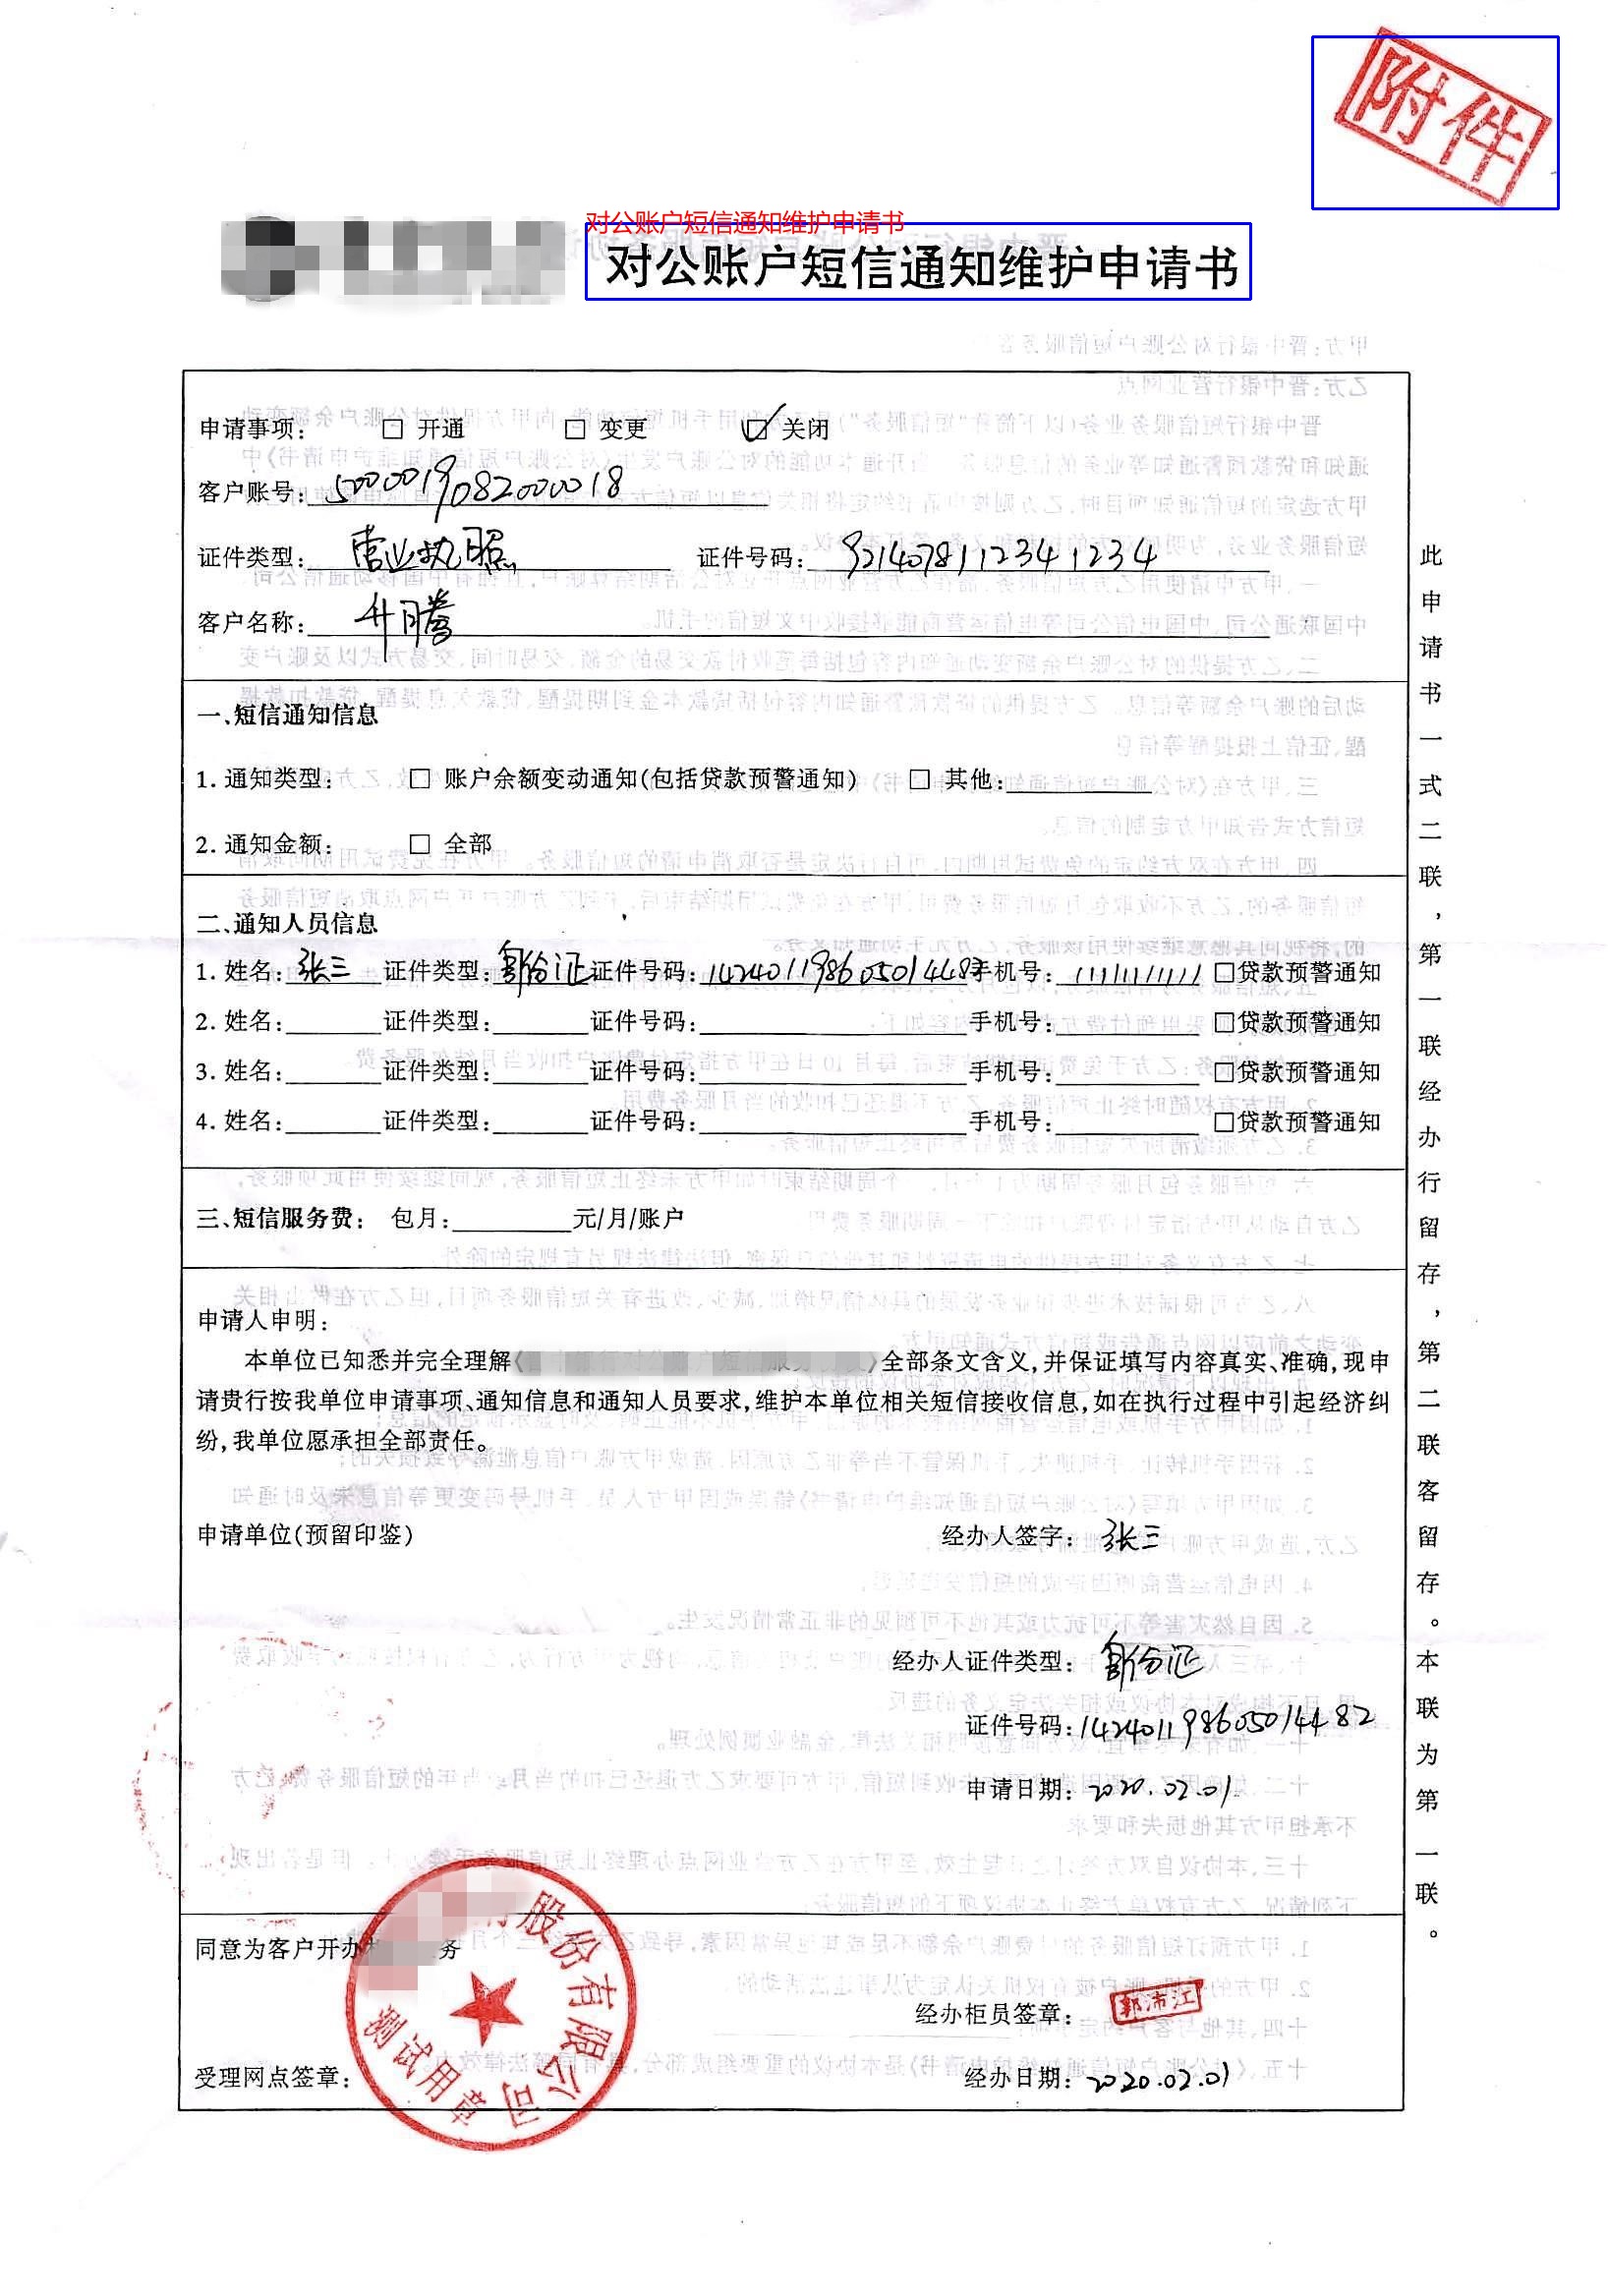 附件
对公账户短信通知维护申请书
对公账户短信通知维护申请书
申请事项: □ 开通 □ 变更 ☑ 关闭
客户账号: 500001908200018
证件类型: 营业执照 证件号码: 9214078112341234
客户名称: 升腾
一、短信通知信息
1. 通知类型: □ 账户余额变动通知(包括贷款预警通知) □ 其他:
2. 通知金额: □ 全部
二、通知人员信息
1. 姓名: 张三 证件类型: 身份证 证件号码: 142401198605014482 手机号: 11111111111 □贷款预警通知
2. 姓名: 证件类型: 证件号码: 手机号: □贷款预警通知
3. 姓名: 证件类型: 证件号码: 手机号: □贷款预警通知
4. 姓名: 证件类型: 证件号码: 手机号: □贷款预警通知
三、短信服务费: 包月: 元/月/账户
申请人申明:
本单位已知悉并完全理解《 》全部条文含义,并保证填写内容真实、准确,现申
请贵行按我单位申请事项、通知信息和通知人员要求,维护本单位相关短信接收信息,如在执行过程中引起经济纠
纷,我单位愿承担全部责任。
申请单位(预留印鉴) 经办人签字: 张三
经办人证件类型: 身份证
证件号码: 142401198605014482
申请日期: 2020.02.01
同意为客户开办 务
股份有限公司
测试用章
经办柜员签章: 郭沛江
受理网点签章: 经办日期: 2020.02.01
此申请书一式二联,第一联经办行留存,第二联客留存。本联为第一联。